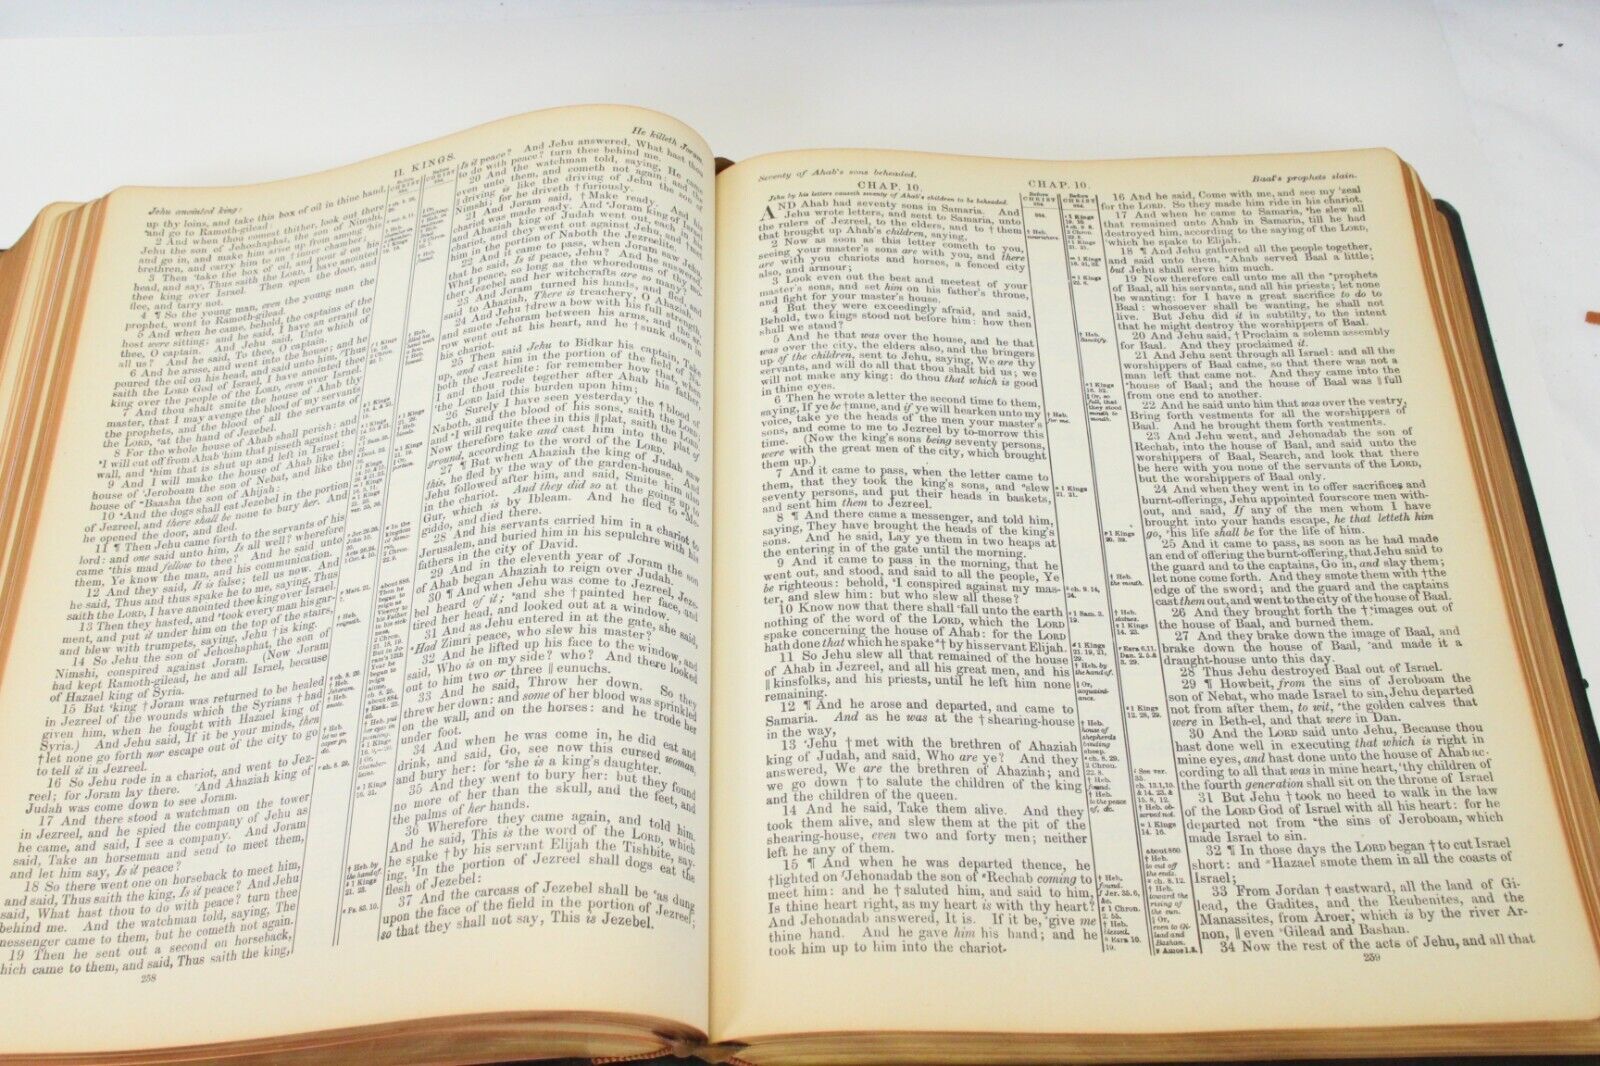 Jehu anointed king:
II. KINGS.
He killeth Joram,
up thy loins, and take this box of oil in thine hand,
and go to Ramoth-gilead:
2 And when thou comest thither, look out there
Jehu the son of Jehoshaphat, the son of Nimshi,
and go in, and make him arise up from among his
brethren, and carry him to an †inner chamber;
3 Then take the box of oil, and pour it on his
head, and say, Thus saith the LORD, I have anointed
thee king over Israel. Then open the door, and
flee, and tarry not.
4 ¶ So the young man, even the young man the
prophet, went to Ramoth-gilead.
5 And when he came, behold, the captains of the
host were sitting; and he said, I have an errand to
thee, O captain. And Jehu said, Unto which of
all us? And he said, To thee, O captain.
6 And he arose, and went into the house; and he
poured the oil on his head, and said unto him, Thus
saith the LORD God of Israel, I have anointed thee
king over the people of the LORD, even over Israel.
7 And thou shalt smite the house of Ahab thy
master, that I may avenge the blood of my servants
the prophets, and the blood of all the servants of
the LORD, at the hand of Jezebel.
8 For the whole house of Ahab shall perish: and
I will cut off from Ahab him that pisseth against the
wall, and him that is shut up and left in Israel:
9 And I will make the house of Ahab like the
house of Jeroboam the son of Nebat, and like the
house of Baasha the son of Ahijah:
10 And the dogs shall eat Jezebel in the portion
of Jezreel, and there shall be none to bury her. And
he opened the door, and fled.
11 ¶ Then Jehu came forth to the servants of his
lord: and one said unto him, Is all well? wherefore
came this mad fellow to thee? And he said unto
them, Ye know the man, and his communication.
12 And they said, It is false; tell us now. And
he said, Thus and thus spake he to me, saying, Thus
saith the LORD, I have anointed thee king over Israel.
13 Then they hasted, and took every man his gar-
ment, and put it under him on the top of the stairs,
and blew with trumpets, saying, Jehu †is king.
14 So Jehu the son of Jehoshaphat, the son of
Nimshi, conspired against Joram. (Now Joram
had kept Ramoth-gilead, he and all Israel, because
of Hazael king of Syria.
15 But king †Joram was returned to be healed
in Jezreel of the wounds which the Syrians †had
given him, when he fought with Hazael king of
Syria.) And Jehu said, If it be your minds, then
†let none go forth nor escape out of the city to go
to tell it in Jezreel.
16 So Jehu rode in a chariot, and went to Jez-
reel; for Joram lay there. And Ahaziah king of
Judah was come down to see Joram.
17 And there stood a watchman on the tower
in Jezreel, and he spied the company of Jehu as
he came, and said, I see a company. And Joram
said, Take an horseman and send to meet them,
and let him say, Is it peace?
18 So there went one on horseback to meet him,
and said, Thus saith the king, Is it peace? And Jehu
said, What hast thou to do with peace? turn thee
behind me. And the watchman told, saying, The
messenger came to them, but he cometh not again.
19 Then he sent out a second on horseback,
which came to them, and said, Thus saith the king,
258
Is it peace? And Jehu answered, What hast thou
to do with peace? turn thee behind me.
20 And the watchman told, saying, He came
even unto them, and cometh not again: and the
driving is like the driving of Jehu the son of
Nimshi; for he driveth †furiously.
21 And Joram said, †Make ready. And his
chariot was made ready. And Joram king of Israel
and Ahaziah king of Judah went out, each in his
chariot, and they went out against Jehu, and †met
him in the portion of Naboth the Jezreelite.
22 And it came to pass, when Joram saw Jehu,
that he said, Is it peace, Jehu? And he answered,
What peace, so long as the whoredoms of thy mo-
ther Jezebel and her witchcrafts are so many?
23 And Joram turned his hands, and fled, and
said to Ahaziah, There is treachery, O Ahaziah.
24 And Jehu †drew a bow with his full strength,
and smote Jehoram between his arms, and the ar-
row went out at his heart, and he †sunk down in
his chariot.
25 Then said Jehu to Bidkar his captain, Take
up, and cast him in the portion of the field of Na-
both the Jezreelite: for remember how that, when
I and thou rode together after Ahab his father,
the LORD laid his burden upon him;
26 Surely I have seen yesterday the †blood of
Naboth, and the blood of his sons, saith the LORD;
and I will requite thee in this ‖plat, saith the LORD.
Now therefore take and cast him into the plat of
ground, according to the word of the LORD.
27 ¶ But when Ahaziah the king of Judah saw
this, he fled by the way of the garden-house. And
Jehu followed after him, and said, Smite him also
in the chariot. And they did so at the going up to
Gur, which is by Ibleam. And he fled to Me-
giddo, and died there.
28 And his servants carried him in a chariot to
Jerusalem, and buried him in his sepulchre with his
fathers in the city of David.
29 And in the eleventh year of Joram the son
of Ahab began Ahaziah to reign over Judah.
30 ¶ And when Jehu was come to Jezreel, Jeze-
bel heard of it; and she †painted her face, and
tired her head, and looked out at a window.
31 And as Jehu entered in at the gate, she said,
Had Zimri peace, who slew his master?
32 And he lifted up his face to the window, and
said, Who is on my side? who? And there looked
out to him two or three ‖eunuchs.
33 And he said, Throw her down. So they
threw her down: and some of her blood was sprinkled
on the wall, and on the horses: and he trode her
under foot.
34 And when he was come in, he did eat and
drink, and said, Go, see now this cursed woman,
and bury her: for she is a king's daughter.
35 And they went to bury her: but they found
no more of her than the skull, and the feet, and
the palms of her hands.
36 Wherefore they came again, and told him.
And he said, This is the word of the LORD, which
he spake †by his servant Elijah the Tishbite, say-
ing, In the portion of Jezreel shall dogs eat the
flesh of Jezebel:
37 And the carcass of Jezebel shall be as dung
upon the face of the field in the portion of Jezreel;
so that they shall not say, This is Jezebel.
Seventy of Ahab's sons beheaded.
CHAP. 10.
CHAP. 10.
Baal's prophets slain.
Jehu by his letters causeth seventy of Ahab's children to be beheaded.
AND Ahab had seventy sons in Samaria. And
Jehu wrote letters, and sent to Samaria, unto
the rulers of Jezreel, to the elders, and to †them
that brought up Ahab's children, saying,
2 Now as soon as this letter cometh to you,
seeing your master's sons are with you, and there
are with you chariots and horses, a fenced city
also, and armour;
3 Look even out the best and meetest of your
master's sons, and set him on his father's throne,
and fight for your master's house.
4 But they were exceedingly afraid, and said,
Behold, two kings stood not before him: how then
shall we stand?
5 And he that was over the house, and he that
was over the city, the elders also, and the bringers
up of the children, sent to Jehu, saying, We are thy
servants, and will do all that thou shalt bid us; we
will not make any king: do thou that which is good
in thine eyes.
6 Then he wrote a letter the second time to them,
saying, If ye be †mine, and if ye will hearken unto my
voice, take ye the heads of the men your master's
sons, and come to me to Jezreel by to-morrow this
time. (Now the king's sons being seventy persons,
were with the great men of the city, which brought
them up.)
7 And it came to pass, when the letter came to
them, that they took the king's sons, and slew
seventy persons, and put their heads in baskets,
and sent him them to Jezreel.
8 ¶ And there came a messenger, and told him,
saying, They have brought the heads of the king's
sons. And he said, Lay ye them in two heaps at
the entering in of the gate until the morning.
9 And it came to pass in the morning, that he
went out, and stood, and said to all the people, Ye
be righteous: behold, I conspired against my mas-
ter, and slew him: but who slew all these?
10 Know now that there shall fall unto the earth
nothing of the word of the LORD, which the LORD
spake concerning the house of Ahab: for the LORD
hath done that which he spake †by his servant Elijah.
11 So Jehu slew all that remained of the house
of Ahab in Jezreel, and all his great men, and his
‖kinsfolks, and his priests, until he left him none
remaining.
12 ¶ And he arose and departed, and came to
Samaria. And as he was at the †shearing-house
in the way,
13 Jehu †met with the brethren of Ahaziah
king of Judah, and said, Who are ye? And they
answered, We are the brethren of Ahaziah; and
we go down †to salute the children of the king
and the children of the queen.
14 And he said, Take them alive. And they
took them alive, and slew them at the pit of the
shearing-house, even two and forty men; neither
left he any of them.
15 ¶ And when he was departed thence, he
†lighted on Jehonadab the son of Rechab coming to
meet him: and he †saluted him, and said to him,
Is thine heart right, as my heart is with thy heart?
And Jehonadab answered, It is. If it be, give me
thine hand. And he gave him his hand; and he
took him up to him into the chariot.
16 And he said, Come with me, and see my zeal
for the LORD. So they made him ride in his chariot.
17 And when he came to Samaria, he slew all
that remained unto Ahab in Samaria, till he had
destroyed him, according to the saying of the LORD,
which he spake to Elijah.
18 ¶ And Jehu gathered all the people together,
and said unto them, Ahab served Baal a little;
but Jehu shall serve him much.
19 Now therefore call unto me all the prophets
of Baal, all his servants, and all his priests; let none
be wanting: for I have a great sacrifice to do to
Baal: whosoever shall be wanting, he shall not
live. But Jehu did it in subtilty, to the intent
that he might destroy the worshippers of Baal.
20 And Jehu said, †Proclaim a solemn assembly
for Baal. And they proclaimed it.
21 And Jehu sent through all Israel: and all the
worshippers of Baal came, so that there was not a
man left that came not. And they came into the
house of Baal; and the house of Baal was ‖full
from one end to another.
22 And he said unto him that was over the vestry,
Bring forth vestments for all the worshippers of
Baal. And he brought them forth vestments.
23 And Jehu went, and Jehonadab the son of
Rechab, into the house of Baal, and said unto the
worshippers of Baal, Search, and look that there
be here with you none of the servants of the LORD,
but the worshippers of Baal only.
24 And when they went in to offer sacrifices and
burnt-offerings, Jehu appointed fourscore men with-
out, and said, If any of the men whom I have
brought into your hands escape, he that letteth him
go, his life shall be for the life of him.
25 And it came to pass, as soon as he had made
an end of offering the burnt-offering, that Jehu said to
the guard and to the captains, Go in, and slay them;
let none come forth. And they smote them with †the
edge of the sword; and the guard and the captains
cast them out, and went to the city of the house of Baal.
26 And they brought forth the †images out of
the house of Baal, and burned them.
27 And they brake down the image of Baal, and
brake down the house of Baal, and made it a
draught-house unto this day.
28 Thus Jehu destroyed Baal out of Israel.
29 ¶ Howbeit, from the sins of Jeroboam the
son of Nebat, who made Israel to sin, Jehu departed
not from after them, to wit, the golden calves that
were in Beth-el, and that were in Dan.
30 And the LORD said unto Jehu, Because thou
hast done well in executing that which is right in
mine eyes, and hast done unto the house of Ahab ac-
cording to all that was in mine heart, thy children of
the fourth generation shall sit on the throne of Israel
31 But Jehu †took no heed to walk in the law
of the LORD God of Israel with all his heart: for he
departed not from the sins of Jeroboam, which
made Israel to sin.
32 ¶ In those days the LORD began †to cut Israel
short: and Hazael smote them in all the coasts of
Israel;
33 From Jordan †eastward, all the land of Gi-
lead, the Gadites, and the Reubenites, and the
Manassites, from Aroer, which is by the river Ar-
non, ‖even Gilead and Bashan.
34 Now the rest of the acts of Jehu, and all that
259